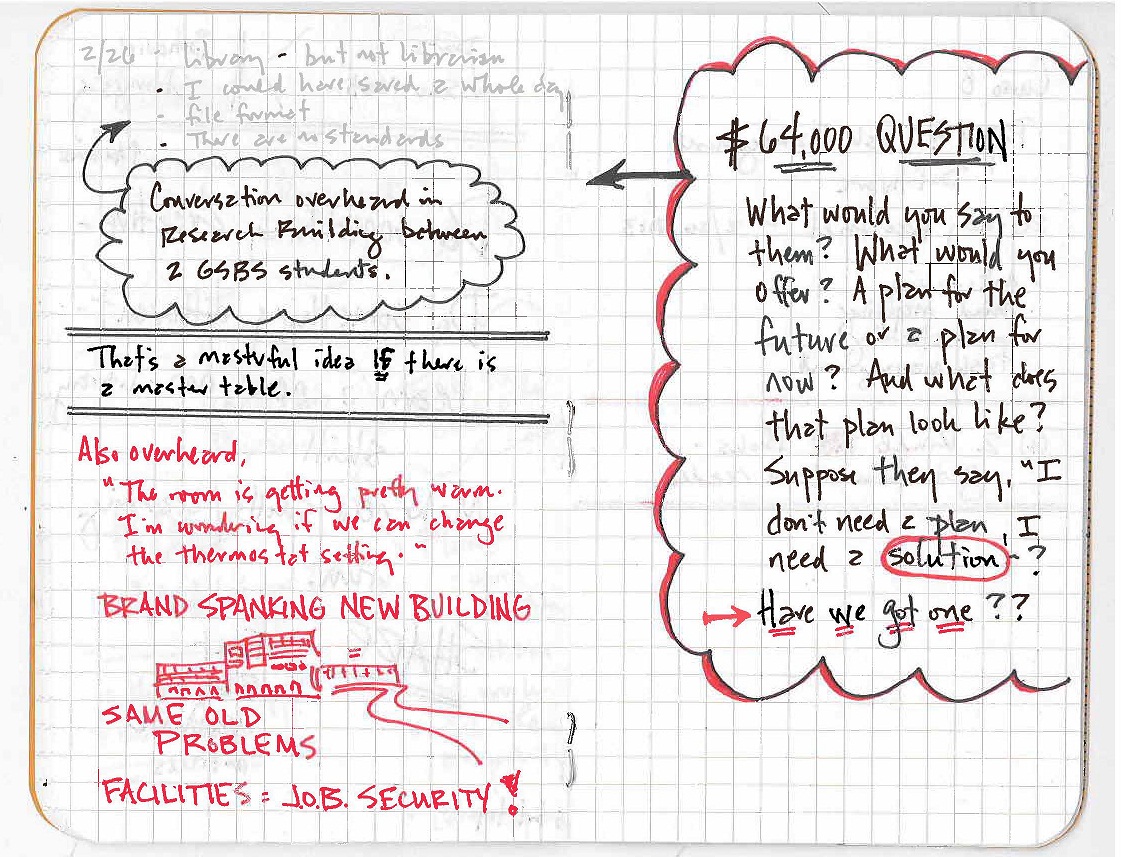 2/26 - library - but not librarian
· I could have saved a whole day
· file format
· There are no standards
Conversation overheard in
Research Building between
2 GSBS students.
That's a masterful idea If there is
a master table.
Also overheard,
"The room is getting pretty warm.
I'm wondering if we can change
the thermostat setting."
BRAND SPANKING NEW BUILDING
SAME OLD
PROBLEMS
FACILITIES = J.O.B. SECURITY!
$64,000 QUESTION
What would you say to
them? What would you
offer? A plan for the
future or a plan for
now? And what does
that plan look like?
Suppose they say, "I
don't need a plan, I
need a solution - ?
Have we got one ??